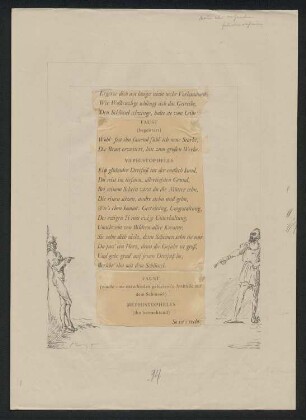 Ergetze dich am längst nicht mehr Vorhandnen;
Wie Wolkenzüge schlingt sich das Getreibe,
Den Schlüssel schwinge, halte sie vom Leibe.
FAUST
(begeistert)
Wohl! fest ihn fassend fühl' ich neue Stärke,
Die Brust erweitert, hin zum großen Werke.
MEPHISTOPHELES
Ein glühnder Dreifuß tut dir endlich kund,
Du seist im tiefsten, allertiefsten Grund.
Bei seinem Schein wirst du die Mütter sehn,
Die einen sitzen, andre stehn und gehn,
Wie's eben kommt. Gestaltung, Umgestaltung,
Des ewigen Sinnes ewige Unterhaltung.
Umschwebt von Bildern aller Kreatur;
Sie sehn dich nicht, denn Schemen sehn sie nur.
Da faß ein Herz, denn die Gefahr ist groß,
Und gehe grad auf jenen Dreifuß los,
Berühr' ihn mit dem Schlüssel!
FAUST
dem Schlüssel)
MEPHISTOPHELES
(ihn betrachtend)
So ist's recht!